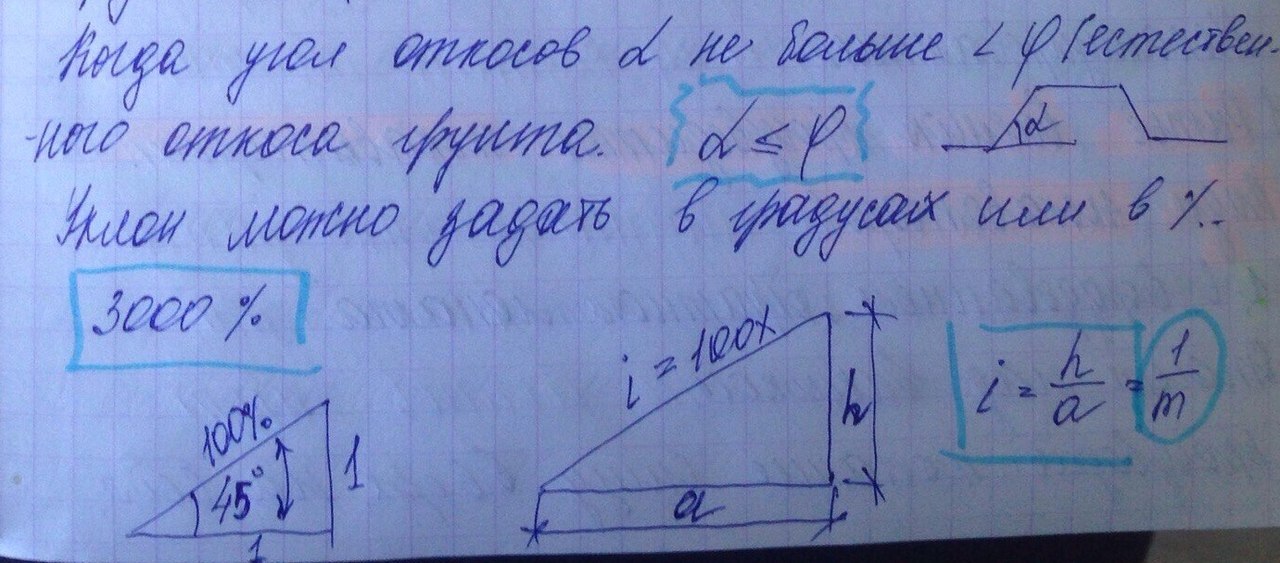 Когда угол откосов α не больше < φ (естествен-
-ного откоса грунта. α ≤ φ
α
Уклон можно задать в градусах или в %.
3000 %
100%
45°
1
1
i = 100%
h
a
i = h/a = 1/m